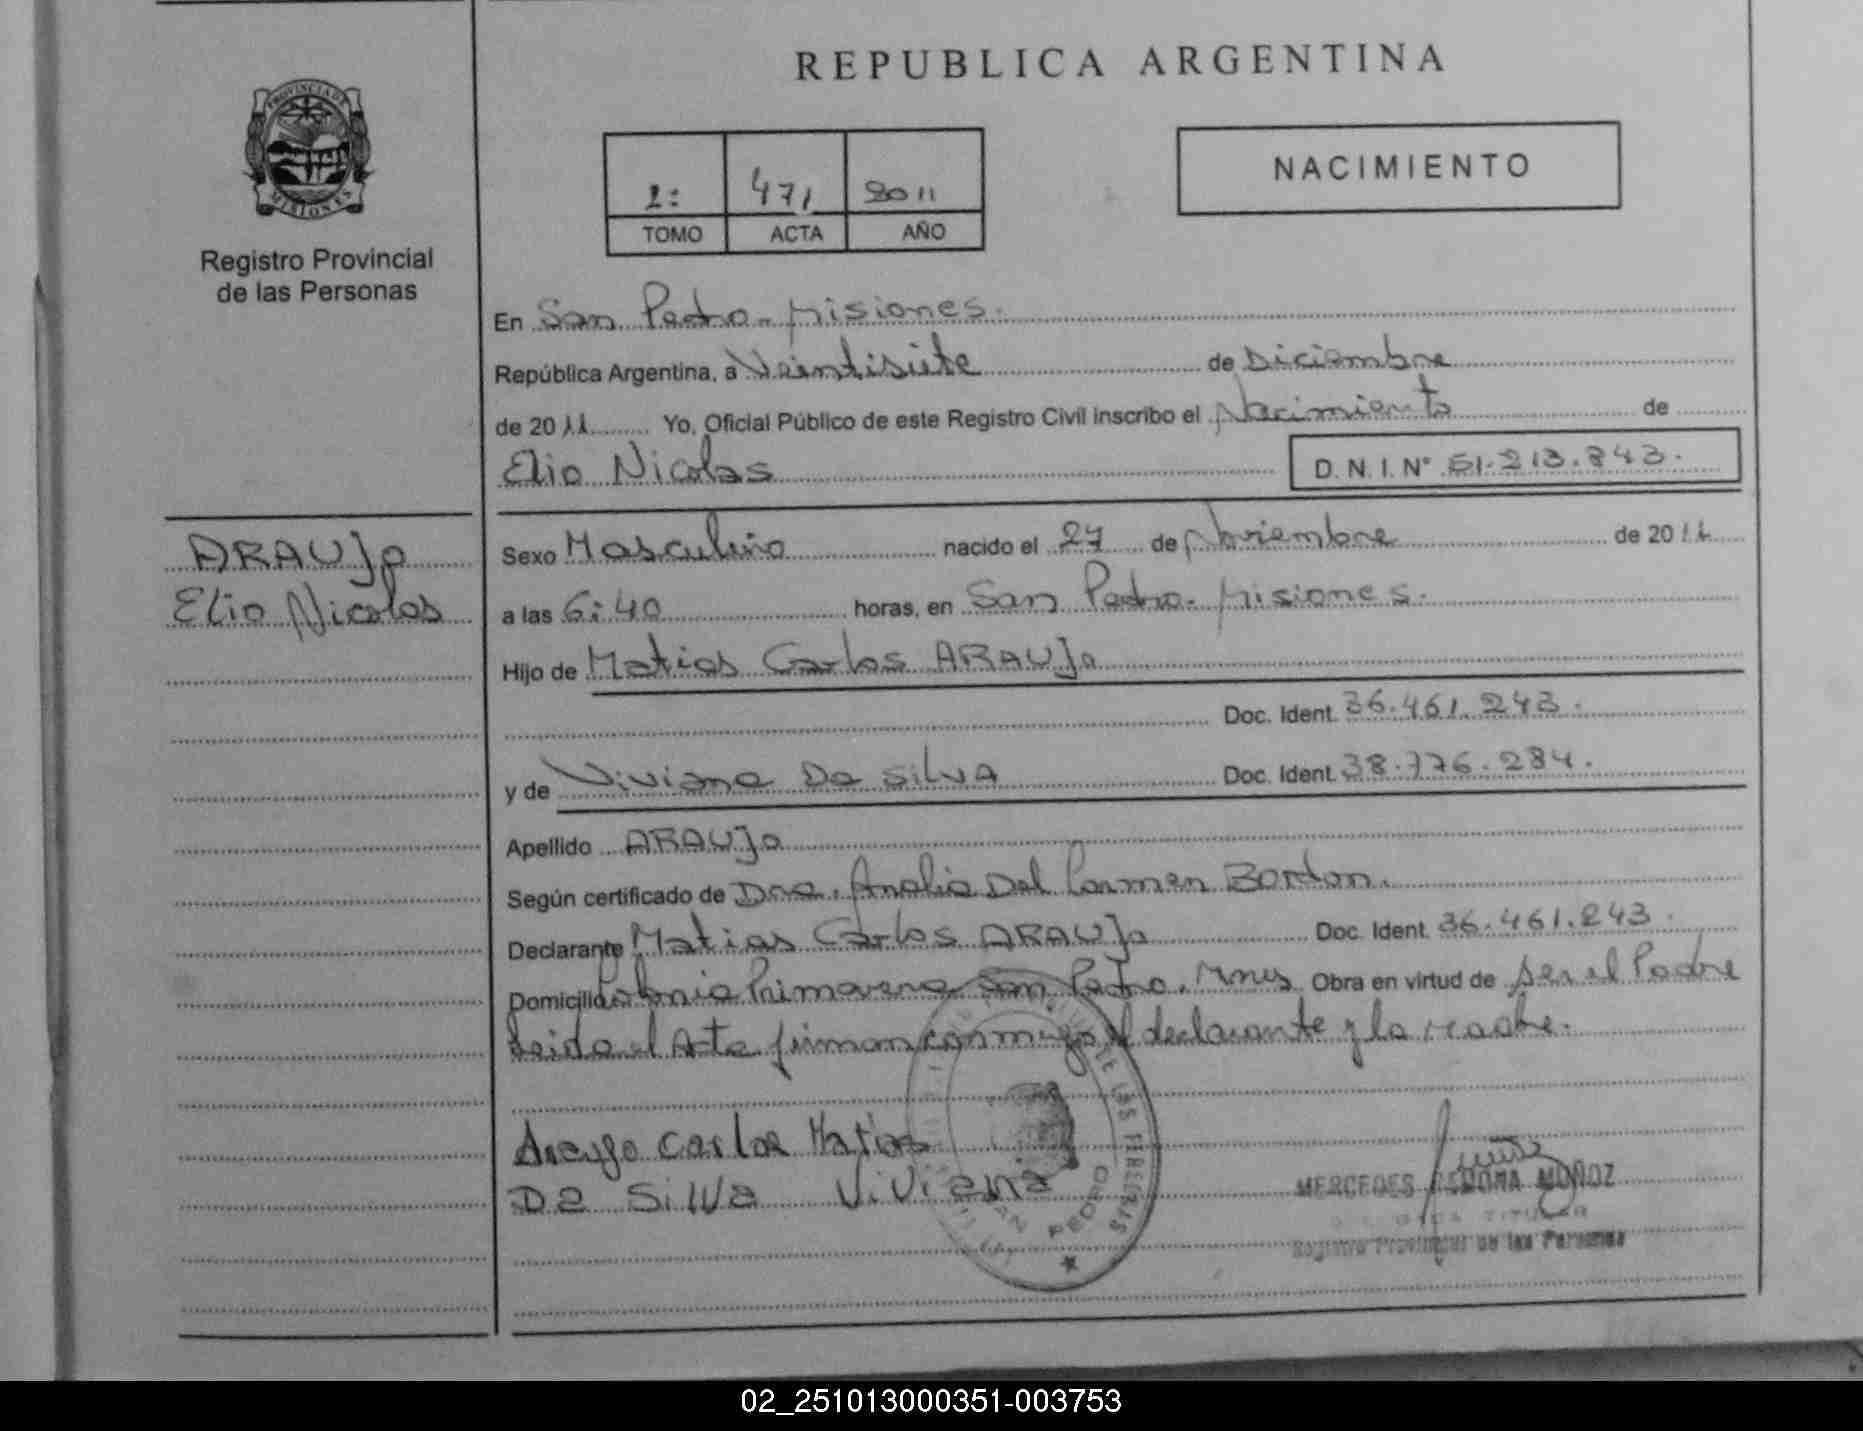 REPUBLICA ARGENTINA
PROVINCIA DE
MISIONES
Registro Provincial
de las Personas
2: 471 2011
TOMO ACTA AÑO
NACIMIENTO
En San Pedro - Misiones.
República Argentina, a Veintisiete de Diciembre
de 2011 Yo, Oficial Público de este Registro Civil inscribo el Nacimiento de
Elio Nicolas D. N. I. N° 51.213.843.
ARAUJo
Elio Nicolas
Sexo Masculino nacido el 27 de Noviembre de 2011
a las 6:40 horas, en San Pedro - Misiones.
Hijo de Matias Carlos ARAUJo
Doc. Ident. 36.461.243.
y de Viviana Da SilvA Doc. Ident. 38.776.284.
Apellido ARAUJo
Según certificado de Dra. Analia Del Carmen Bordon.
Declarante Matias Carlos ARAUJo Doc. Ident. 36.461.243.
Domicilio Colonia Primavera San Pedro. Mnes Obra en virtud de ser el Padre
Leida el Acta firman conmigo el declarante y la Madre.
Araujo Carlos Matias
Da Silva Viviana
SAN PEDRO
MERCEDES RAMONA MUÑOZ
TITULAR
Registro Provincial de las Personas
02_251013000351-003753